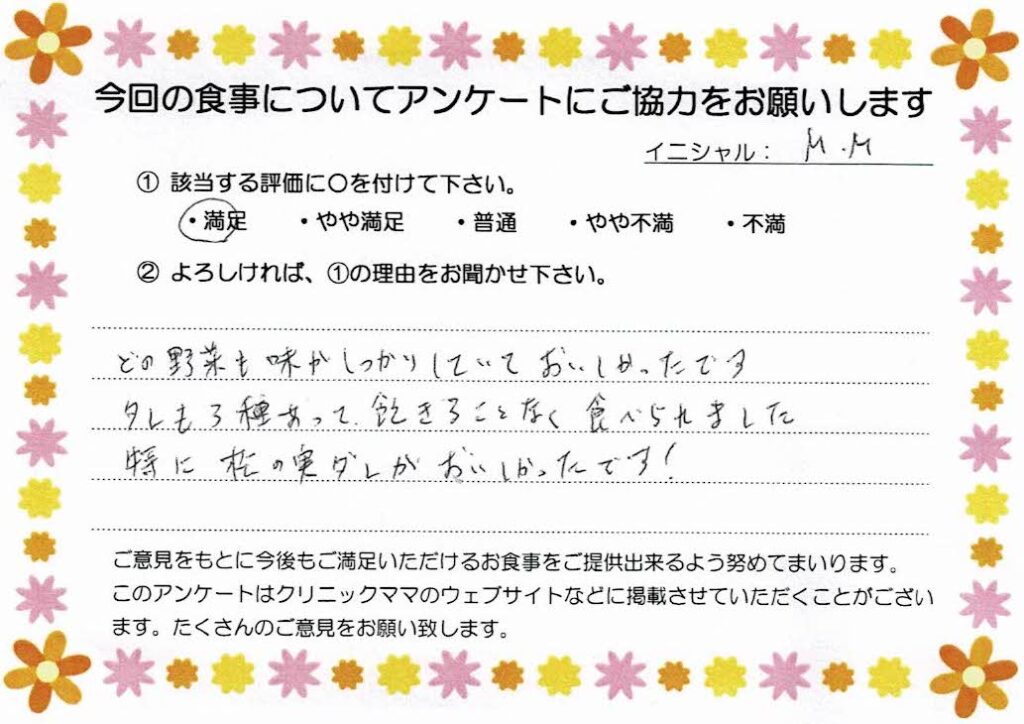 今回の食事についてアンケートにご協力をお願いします
イニシャル： M.M
① 該当する評価に〇を付けて下さい。
・満足 ・やや満足 ・普通 ・やや不満 ・不満
② よろしければ、①の理由をお聞かせ下さい。
どの野菜も味がしっかりしていて おいしかったです
タレも3種あって、飽きることなく 食べられました
特に 松の実ダレが おいしかったです!
ご意見をもとに今後もご満足いただけるお食事をご提供出来るよう努めてまいります。
このアンケートはクリニックママのウェブサイトなどに掲載させていただくことがござい
ます。たくさんのご意見をお願い致します。